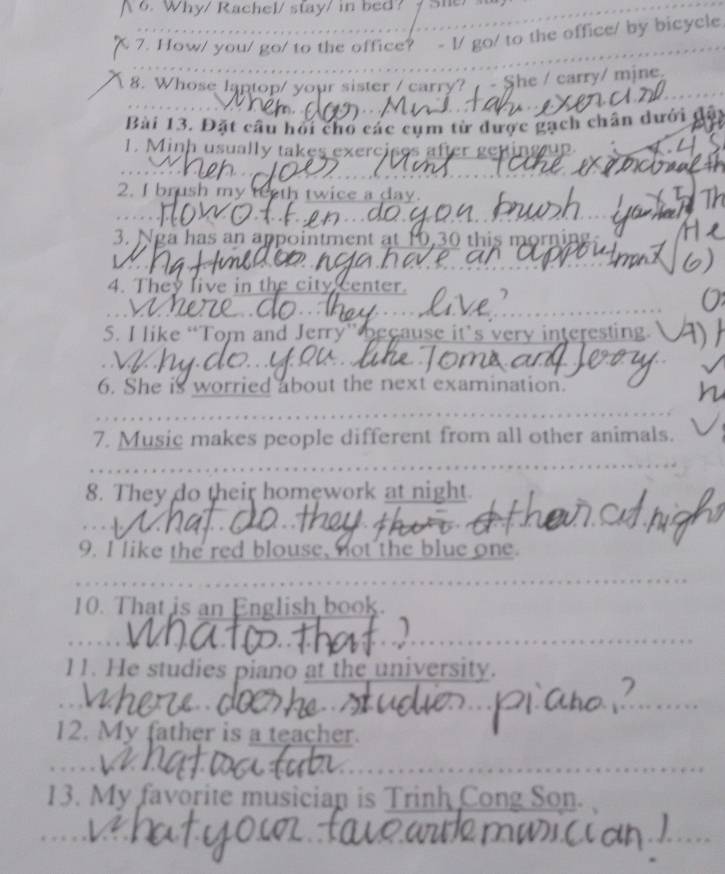 6. Why/ Rachel/ stay/ in bed?
7. How/ you/ go/ to the office? - I/ go/ to the office/ by bicycle
8. Whose laptop/ your sister / carry? - She / carry/ mine.
When does Minh take
Bài 13. Đặt câu hỏi cho các cụm từ được gạch chân dưới đây
1. Minh usually takes exercises after getting up.
When does Minh Take
2. I brush my teeth twice a day.
How often do you brush your
3. Nga has an appointment at 10,30 this morning.
What time do nga have an
4. They live in the city center.
Where do they live?
5. I like “Tom and Jerry” because it's very interesting.
Why do you like Tom and Jerry
6. She is worried about the next examination.
7. Music makes people different from all other animals.
8. They do their homework at night.
What do they their at night
9. I like the red blouse, not the blue one.
10. That is an English book.
What is that?
11. He studies piano at the university.
Where does he studies piano?
12. My father is a teacher.
What
13. My favorite musician is Trinh Cong Son.
What your musician